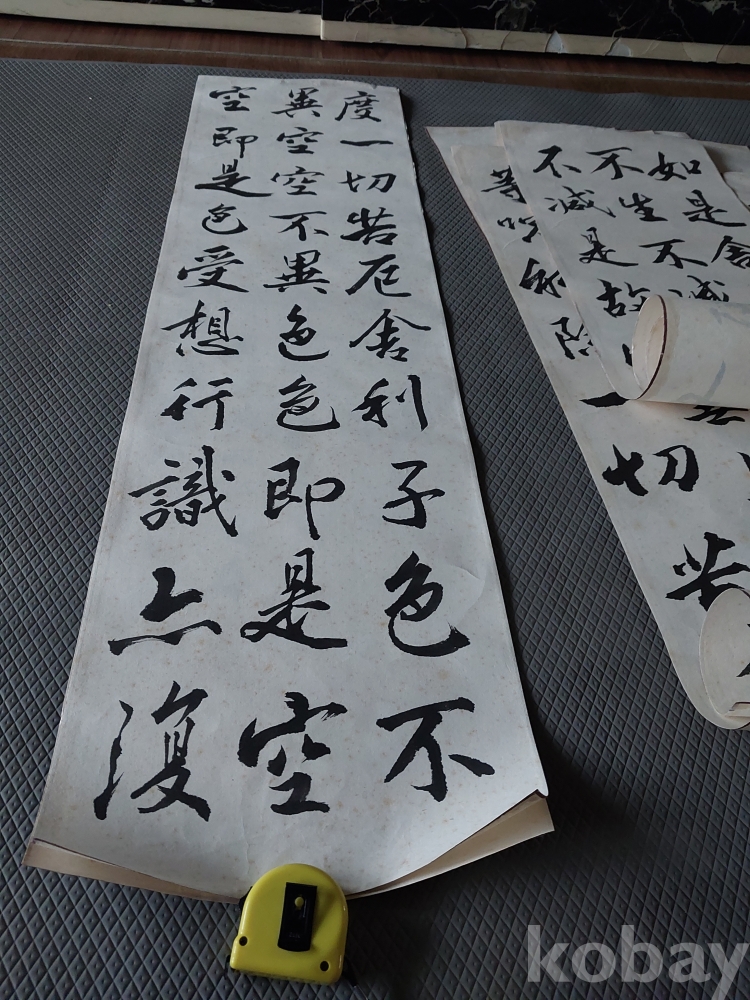 度一切苦厄舍利子色不
異空空不異色色即是空
空即是色受想行識亦復
如是舍
不生不滅
不減是故
切苦
kobay